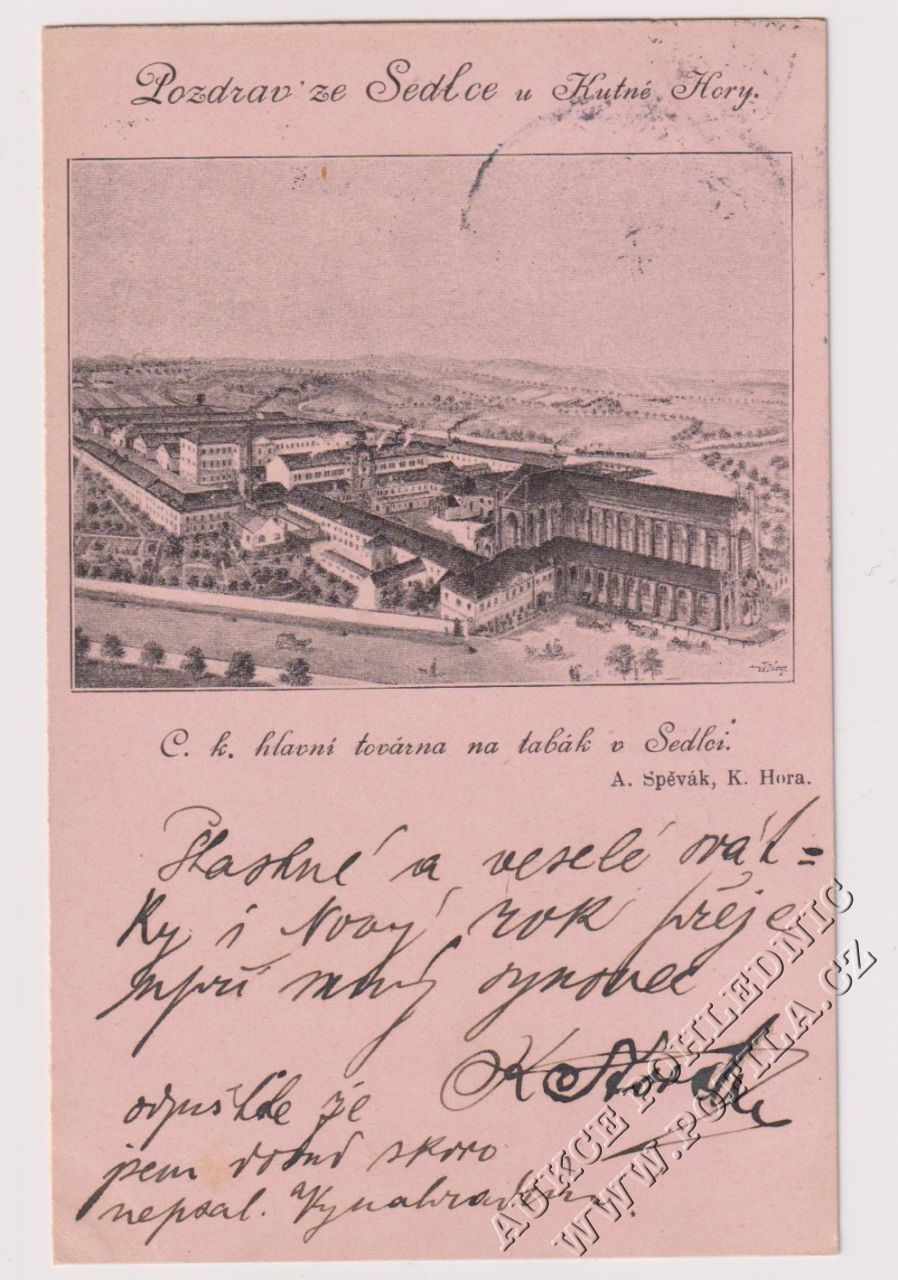 Pozdrav ze Sedlce u Kutné Hory.
C. k. hlavní továrna na tabák v Sedlci.
A. Spěvák, K. Hora.
Šťastné a veselé svát=
ky i Nový rok přeje
synovec
odpusťte že
jsem dosud skoro
nepsal. Vynahradím.
AUKCE POHLEDNIC
WWW.POPILA.CZ